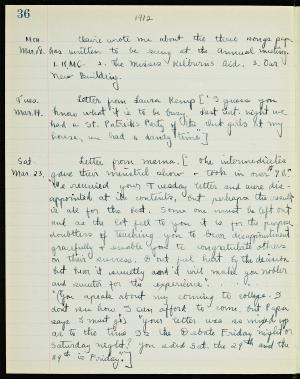 36
1912
Mon. Claire wrote me about the three songs pap
Mar. 18. has written to be sung at the annual meeting
1. K.M.C. 2. The Misses Kilburn's Aid. 3. Our
New Building.
Tues. Letter from Laura Kemp ["I guess you
Mar. 19. know what it is to be busy. Last Sat. night we
had a St. Patrick's Party of the girls at my
house, we had a dandy time."]
Sat. Letter from mama. ["The intermediates
Mar. 23. gave their minstrel show + took in over $7.00.
"We received your Tuesday letter and were dis-
appointed at its contents, but perhaps the result
is all for the best. Some one must be left out
and as the lot fell to you it is for the purpose
doubtless of teaching you to bear disappointment
gracefully + enable you to congratulate others
on their success. Don't feel hurt by the decision
but bear it sweetly and it will make you nobler
and sweeter for the experience. . . .
"You speak about my coming to college. I
don't see how I can afford to come, but Papa
says I must go. Your letter was so mixed up
as to the time. Is the Debate Friday night or
Saturday night? You said Sat. the 29th and the
29th is Friday."]